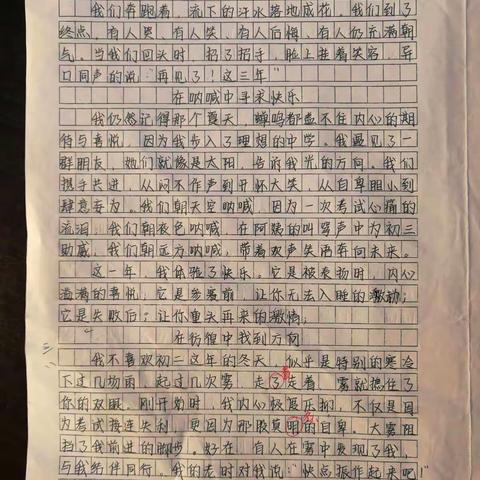 我们奔跑着，流下的汗水落地成花。我们到了
终点，有人哭，有人笑，有人后悔，有人仍充满朝
气。当我们回头时，招了招手，脸上挂着笑容，异
口同声的说“再见了！这三年”
在呐喊中寻求快乐
我仍然记得那个夏天，蝉鸣都盖不住内心的期
待与喜悦，因为我步入了理想的中学。我遇见了一
群朋友，她们就像是太阳，告诉我光的方向。我们
携手共进，从闷不作声到开怀大笑，从自卑胆小到
肆意妄为。我们朝天空呐喊，因为一次考试心痛的
流泪，我们朝夜色呐喊，在阿姨的叫窗声中为初三
助威，我们朝远方呐喊，带着欢声笑语奔向未来。
这一年，我体验了快乐。它是被表扬时，内心
溢满的喜悦；它是参赛前，让你无法入睡的激动；
它是失败后，让你重头再来的激情。
在彷徨中找到方向
三
我不喜欢初二这年的冬天，似乎是特别的寒冷
下过几场雨，起过几次雾，走了走着，雾就挡住了
着
你的双眼。刚开始时，我内心极度正拥，不仅是因
为考试接连失利，更因为那股莫明的自卑。大雾阻
名
挡了我前进的脚步。好在，有人在雾中发现了我，
与我结伴同行。我的老师对我说：“快点振作起来吧！”